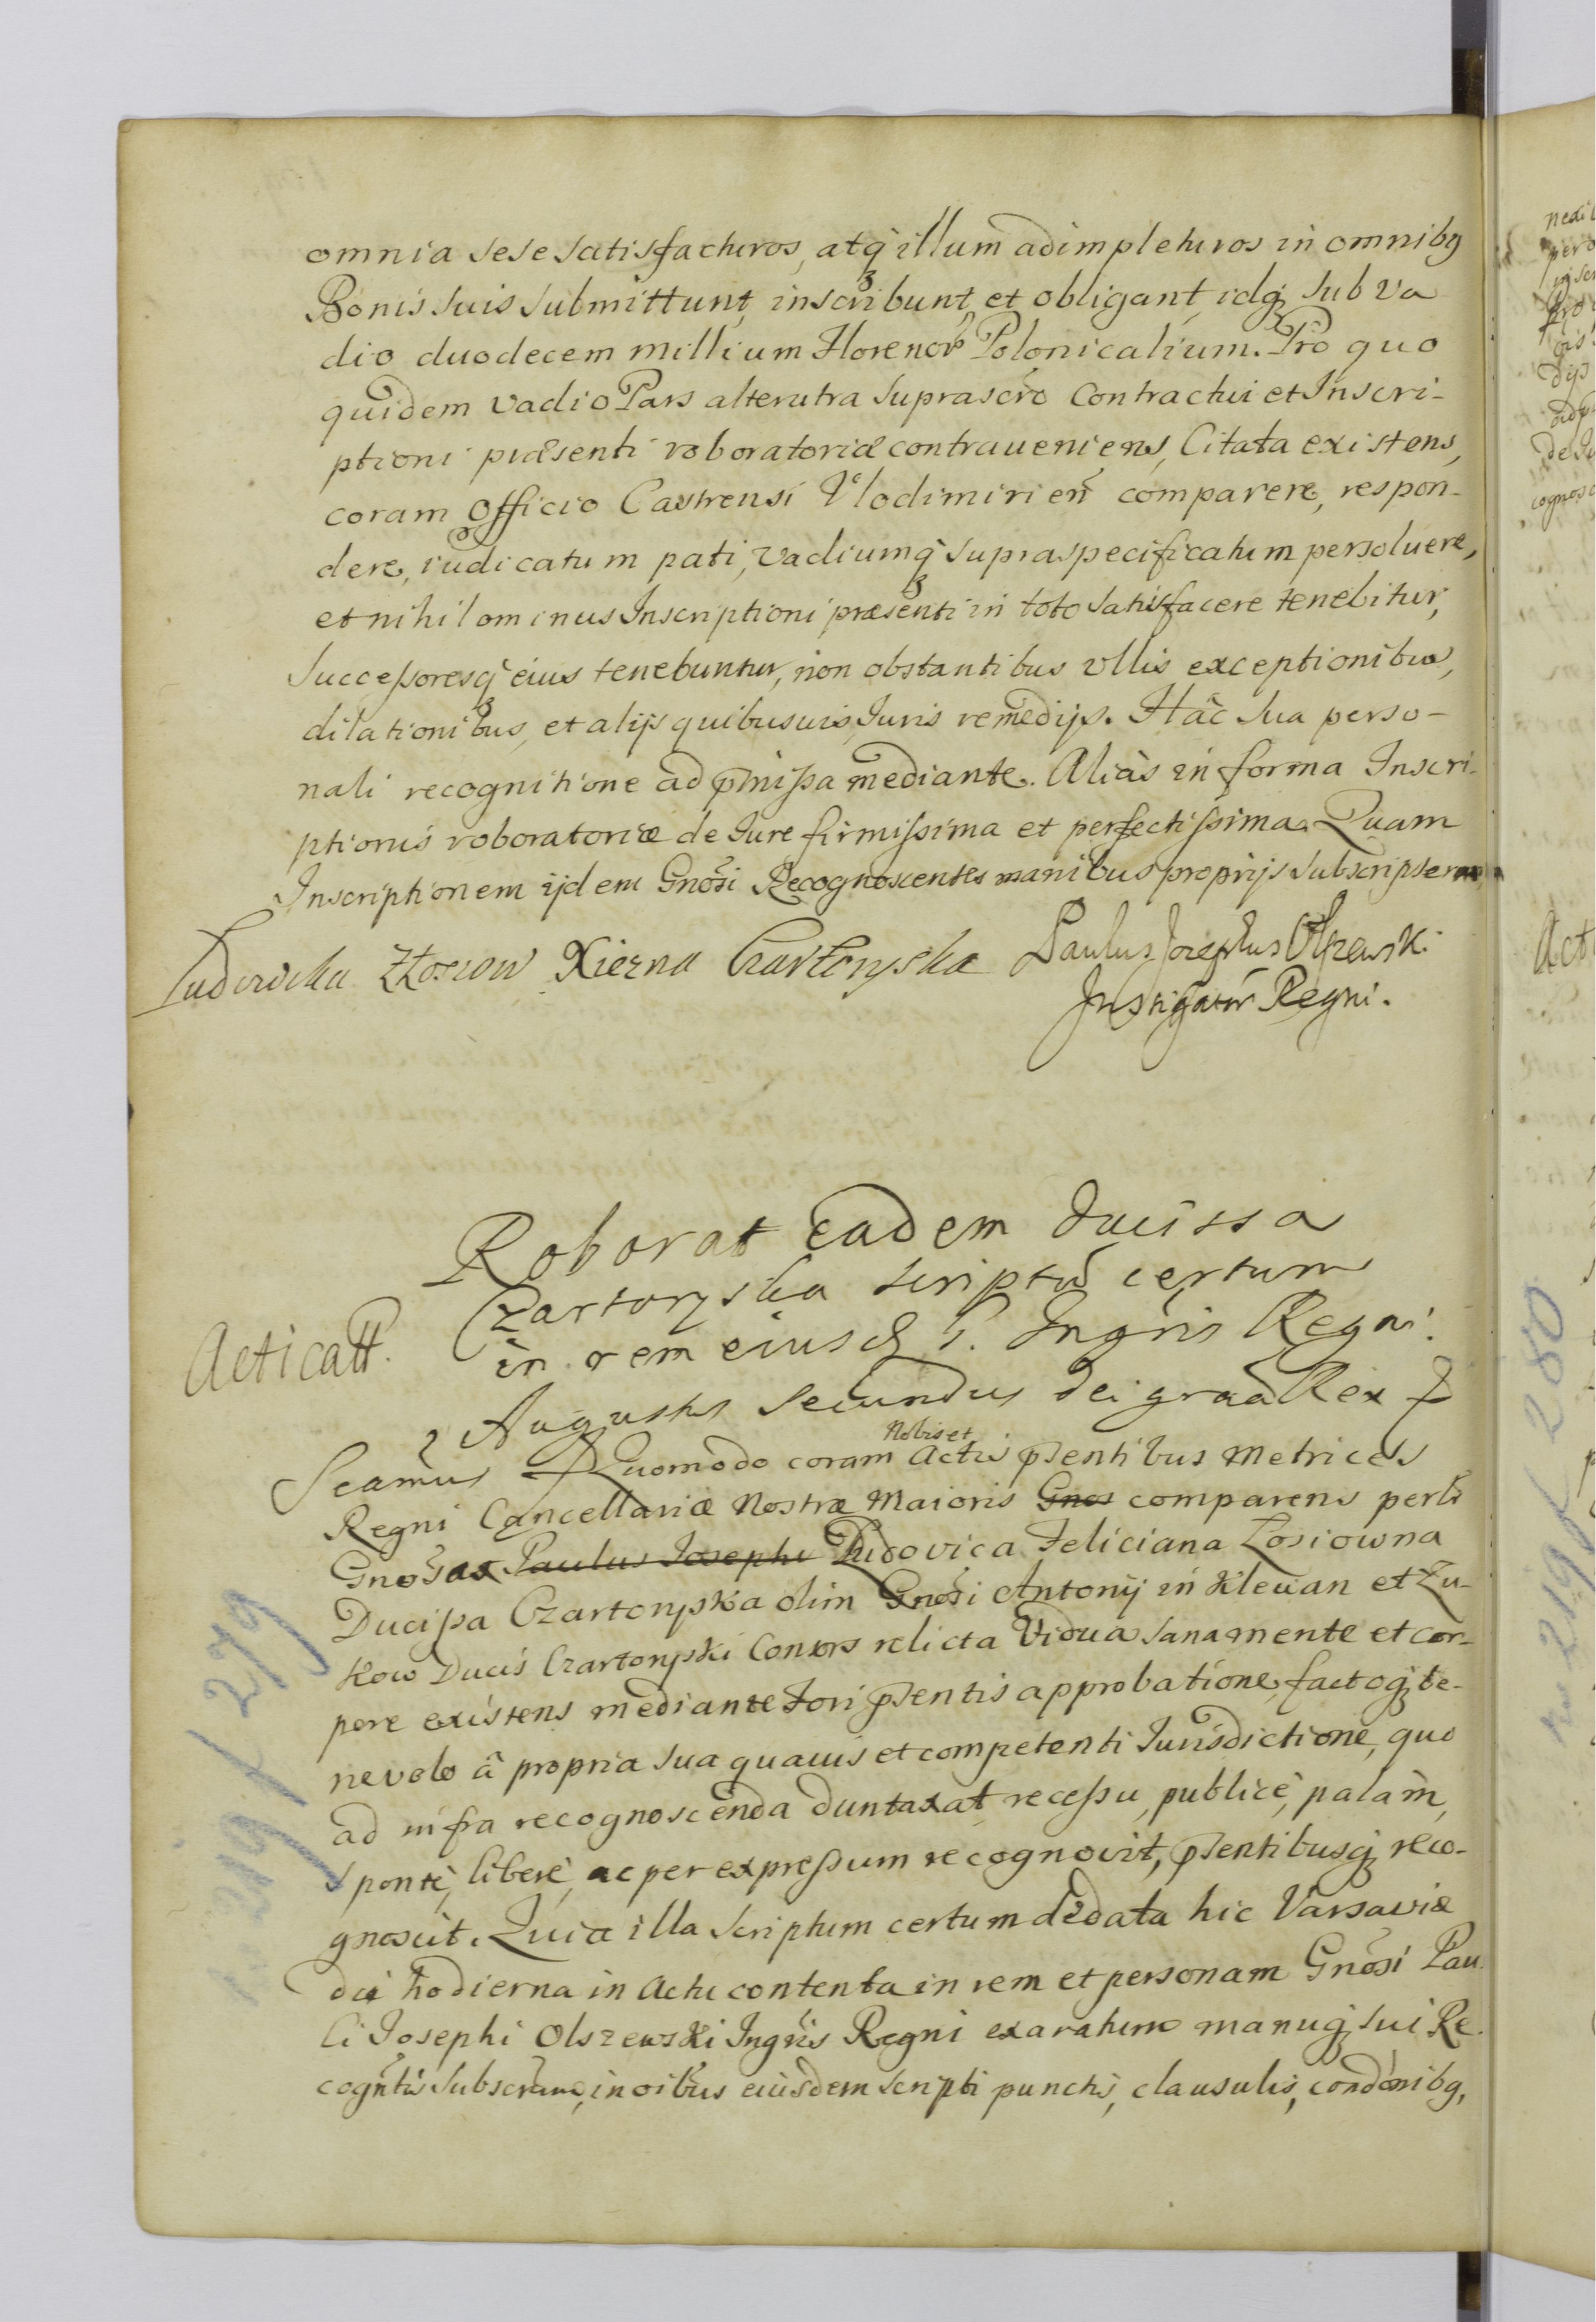 omnia sese satisfacturos, atq̃ illum adimpleturos in omnibq
Bonis suis submittunt, inscribunt, et obligant, idq; sub va
dio duodecem millium Florenor̃ Polonicalium. Pro quo
quidem vadio Pars alterutra suprascr̃o Contractui et Inscri-
ptioni præsenti roboratoriæ contraueniens, Citata existens,
coram Officio Castrensi Vlodimirien̄ comparere, respon-
dere, iudicatum pati, vadiumq̃ supraspecificatum persoluere,
et nihilominus Inscriptioni præsenti in toto satisfacere tenebitur,
Successoresq̃ eius tenebuntur, non obstantibus vllis exceptionibus,
dilationibus, et alijs quibusuis Juris remedijs. Hâc sua perso-
nali recognitione ad p̃missa mediante. Aliàs in forma Inscri-
ptionis roboratoriæ de Jure firmissima et perfectissima. Quam
Inscriptionem ijdem Gnosi Recognoscentes manibus proprijs subscripserunt
Ludowika Złosiow Xiezna Czartoryska Paulus Josephus Olszewski
Instigator Regni.
Roborat eadem Ducissa
Czartoryska scriptũ certum
in rem eiusd G. Ingris Regni.
Acticatt.
Augustus Secundus Dei graã Rex
Nobis et
Seamus Quomodo coram Actis p̃sentibus Metrices
Regni Cancellariæ Nostræ Maioris Gnos comparens perlr
Gnosa Paulus Josephu Ludovica Feliciana Łosiowna
Ducissa Czartoryska olim Gnosi Antonij in Klewan et Zu-
kow Ducis Czartoryski Consors relicta Vidua sana mente et cor-
pore existens mediante Fori p̃sentis approbatione, factoq; be-
nevole â propria sua quauis et competenti Jurisdictione, quo
ad infra recognoscenda duntaxat recessu, publicè, palàm,
sponte, liberè, ac per expressum recognovit, p̃sentibusq; reco-
gnoscit. Quia illa scriptum certum de data hic Varsaviæ
die hodierna in Actu contenta in rem et personam Gnosi Pau-
li Josephi Olszewski Ingris Regni exaratum manuq; sui Re-
cogñtis subscrum, in oibus eiusdem scripti punctis, clausulis, condonibq,
219/279